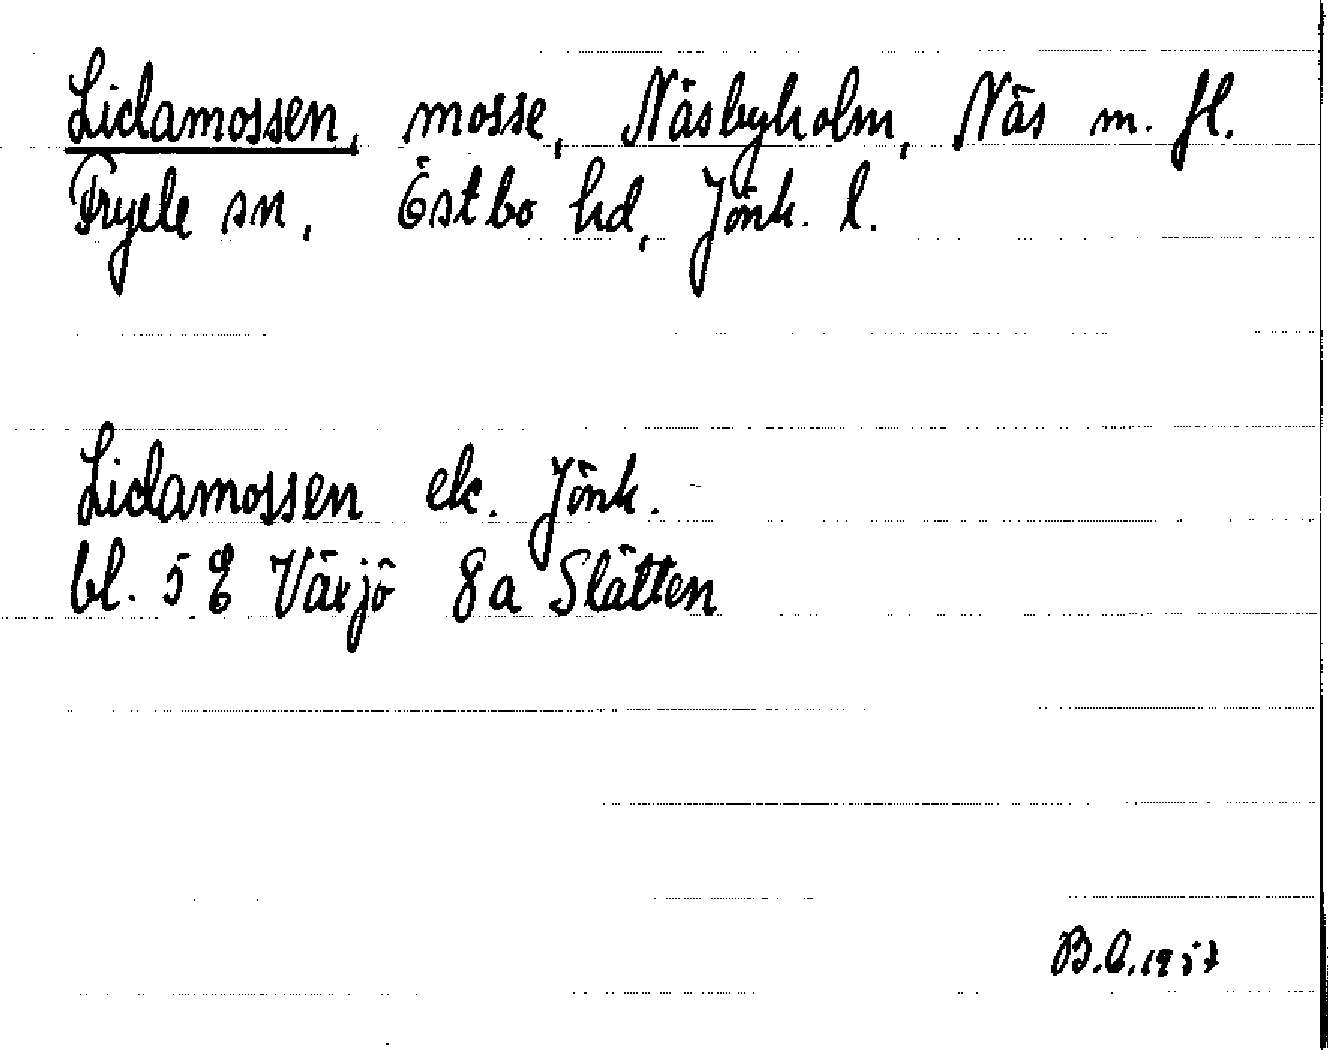 Lidamossen, mosse, Näsbyholm, Näs m. fl.
Fryele sn, Östbo hd, Jönk. l.
Lidamossen ek. Jönk.
bl. 5 E Växjö 8a Slätten
B.C. 1957